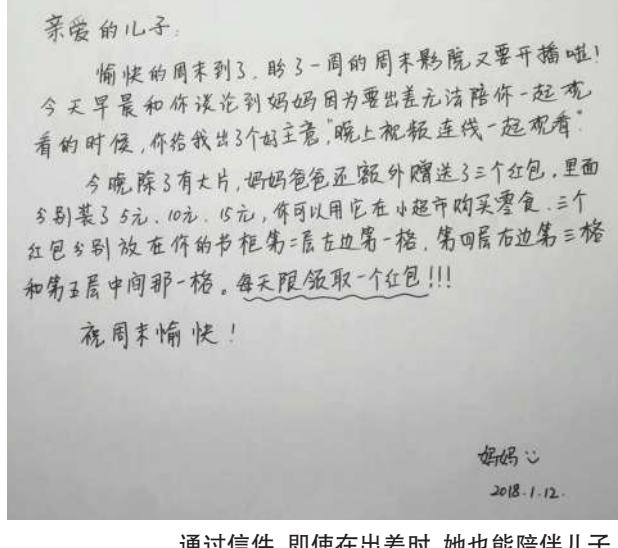 亲爱的儿子:
愉快的周末到了,盼了一周的周末影院又要开播啦!
今天早晨和你谈论到妈妈因为要出差无法陪你一起观
看的时候,你给我出了个好主意,"晚上视频连线一起观看"
今晚除了有大片,妈妈爸爸还额外赠送了三个红包,里面
分别装了5元、10元、15元,你可以用它在小超市购买零食.三个
红包分别放在你的书柜第二层左边第一格,第四层右边第三格
和第五层中间那一格。每天限领取一个红包!!!
祝周末愉快!
妈妈
2018.1.12.
通过信件,即使在出差时,她也能陪伴儿子